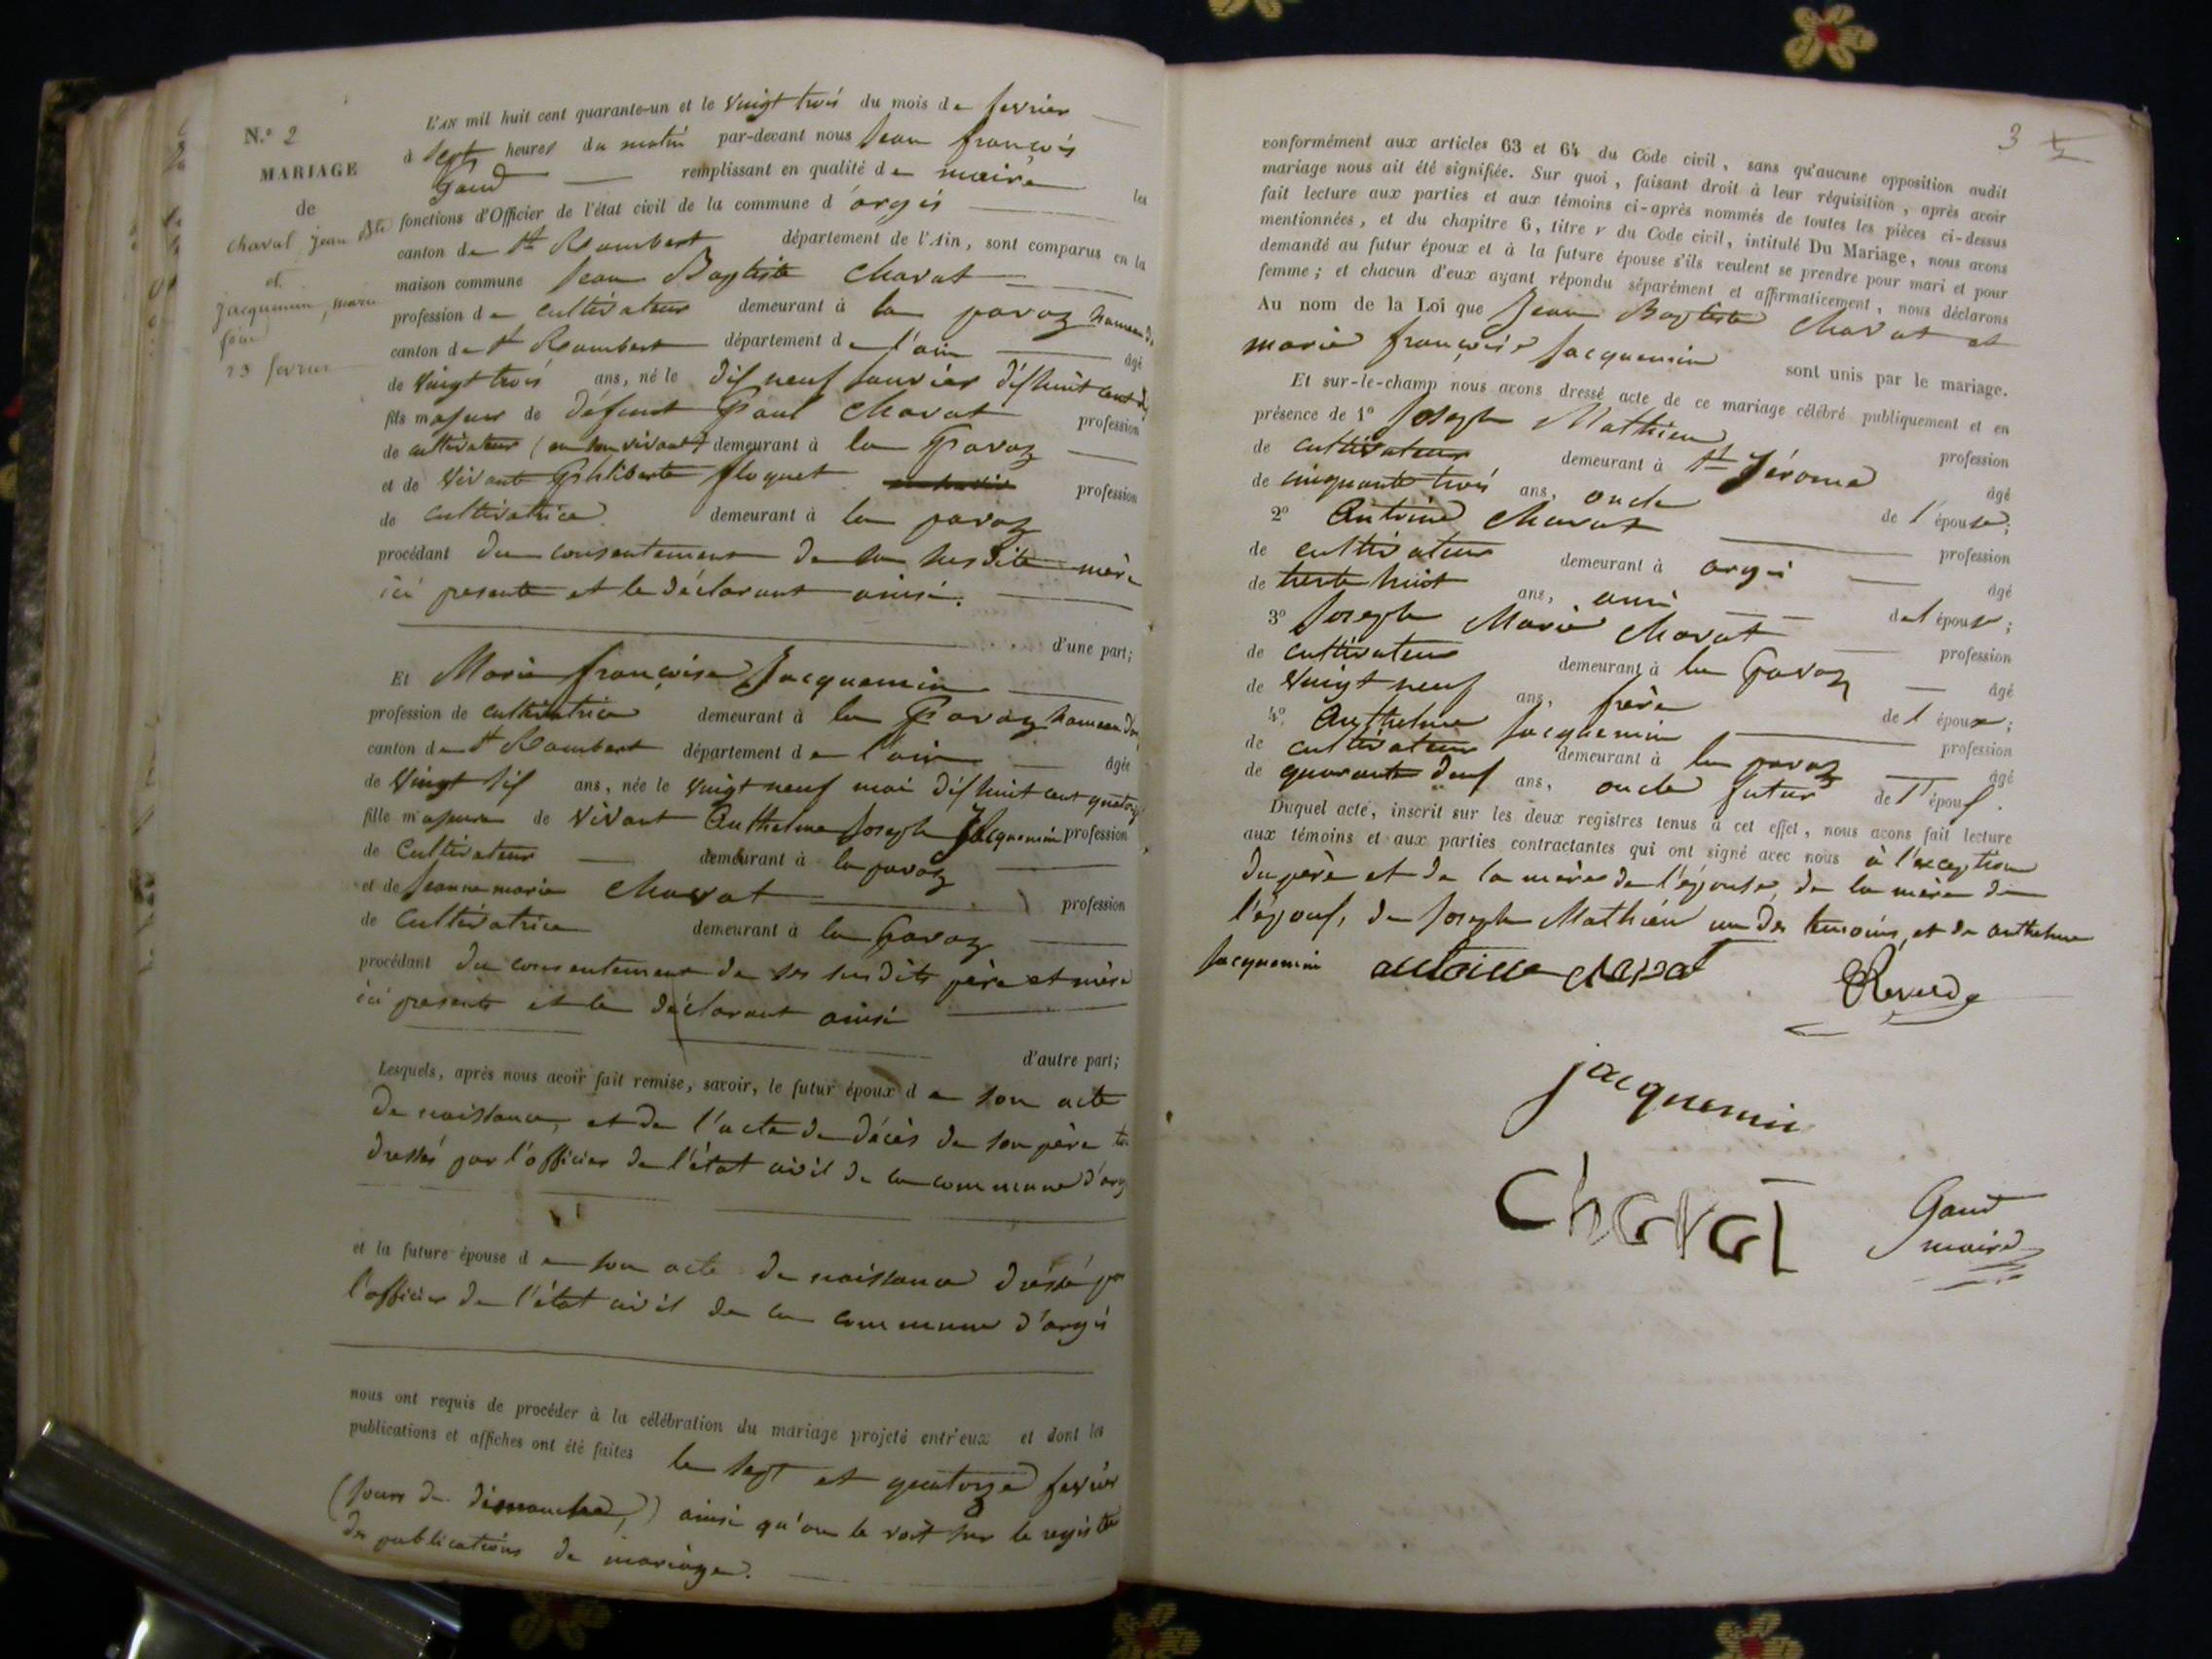 N.° 2
MARIAGE
de
Charvat, jean Bte
et
jacquemin, marie
23 fevrier
L'AN mil huit cent quarante-un et le vingt trois du mois de fevrier
à sept heures du matin par-devant nous jean françois
Gaud remplissant en qualité de maire les
fonctions d'Officier de l'état civil de la commune d'argis
canton de St Rambert département de l'Ain, sont comparus en la
maison commune Jean Baptiste Charvat
profession de cultivateur demeurant à la pavaz hameau d
canton de St Rambert département de l'ain âgé
de vingt trois ans, né le dix neuf janvier dix huit cent
fils majeur de défunt Paul Charvat profession
de cultivateur (en son vivant) demeurant à la Pavaz
et de vivante Philiberte floquet profession
de cultivatrice demeurant à la pavaz
procédant du consentement de sa susdite mère
ici presente et le déclarant ainsi.
d'une part;
Et Marie françoise Jacquemin
profession de cultivatrice demeurant à la Pavaz hameau d
canton de St Rambert département de l'ain âgée
de vingt six ans, née le vingt neuf mai dix huit cent quatorze
fille majeure de vivant Anthelme Joseph Jacquemin profession
de Cultivateur demeurant à la pavaz
et de Jeanne marie Charvat profession
de Cultivatrice demeurant à la Pavaz
procédant du consentement de ses susdits père et mère
ici presents et le déclarant ainsi
d'autre part;
Lesquels, après nous avoir fait remise, savoir, le futur époux de son acte
de naissance, et de l'acte de décès de son père
dressés par l'officier de l'état civil de la commune d'arg
et la future épouse de son acte de naissance dressé par
l'officier de l'état civil de la commune d'argis
nous ont requis de procéder à la célébration du mariage projeté entr'eux et dont les
publications et affiches ont été faites le sept et quatorze fevrier
(jours de dimanche,) ainsi qu'on le voit sur le registre
des publications de mariage.
3
conformément aux articles 63 et 64 du Code civil, sans qu'aucune opposition audit
mariage nous ait été signifiée. Sur quoi, faisant droit à leur réquisition, après avoir
fait lecture aux parties et aux témoins ci-après nommés de toutes les pièces ci-dessus
mentionnées, et du chapitre 6, titre v du Code civil, intitulé Du Mariage, nous avons
demandé au futur époux et à la future épouse s'ils veulent se prendre pour mari et pour
femme; et chacun d'eux ayant répondu séparément et affirmativement, nous déclarons
Au nom de la Loi que Jean Baptiste Charvat et
marie françoise Jacquemin sont unis par le mariage.
Et sur-le-champ nous avons dressé acte de ce mariage célébré publiquement et en
présence de 1° Joseph Mathieu profession
de cultivateur demeurant à St Jérome âgé
de cinquante trois ans, oncle de l'épouse;
2° Antoine Charvat profession
de cultivateur demeurant à argis âgé
de trente huit ans, ami de l'époux;
3° Joseph Marie Charvat profession
de cultivateur demeurant à la Pavaz âgé
de vingt neuf ans, frère de l'époux;
4° Anthelme Jacquemin profession
de cultivateur demeurant à la pavaz âgé
de quarante deux ans, oncle futur de l'époux.
Duquel acte, inscrit sur les deux registres tenus à cet effet, nous avons fait lecture
aux témoins et aux parties contractantes qui ont signé avec nous à l'exception
du père et de la mère de l'épouse, de la mère de
l'époux, de Joseph Mathieu un des temoins, et de anthelme
Jacquemin antoine charvat
jacquemin
Charvat
Gaud
maire